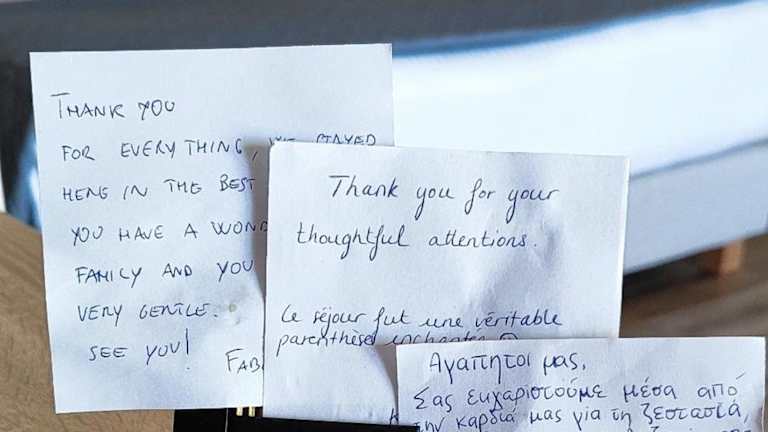 THANK YOU
FOR EVERYTHING, WE STAYED
HENS IN THE BEST
YOU HAVE A WOND
FAMILY AND YOU
VERY GENTLE.
SEE YOU!
FAB
Thank you for your
thoughtful attentions.
Le séjour fut une véritable
parenthèse enchantée
Αγαπητοί μας,
Σας ευχαριστούμε μέσα από
την καρδιά μας για τη ζεστασιά,